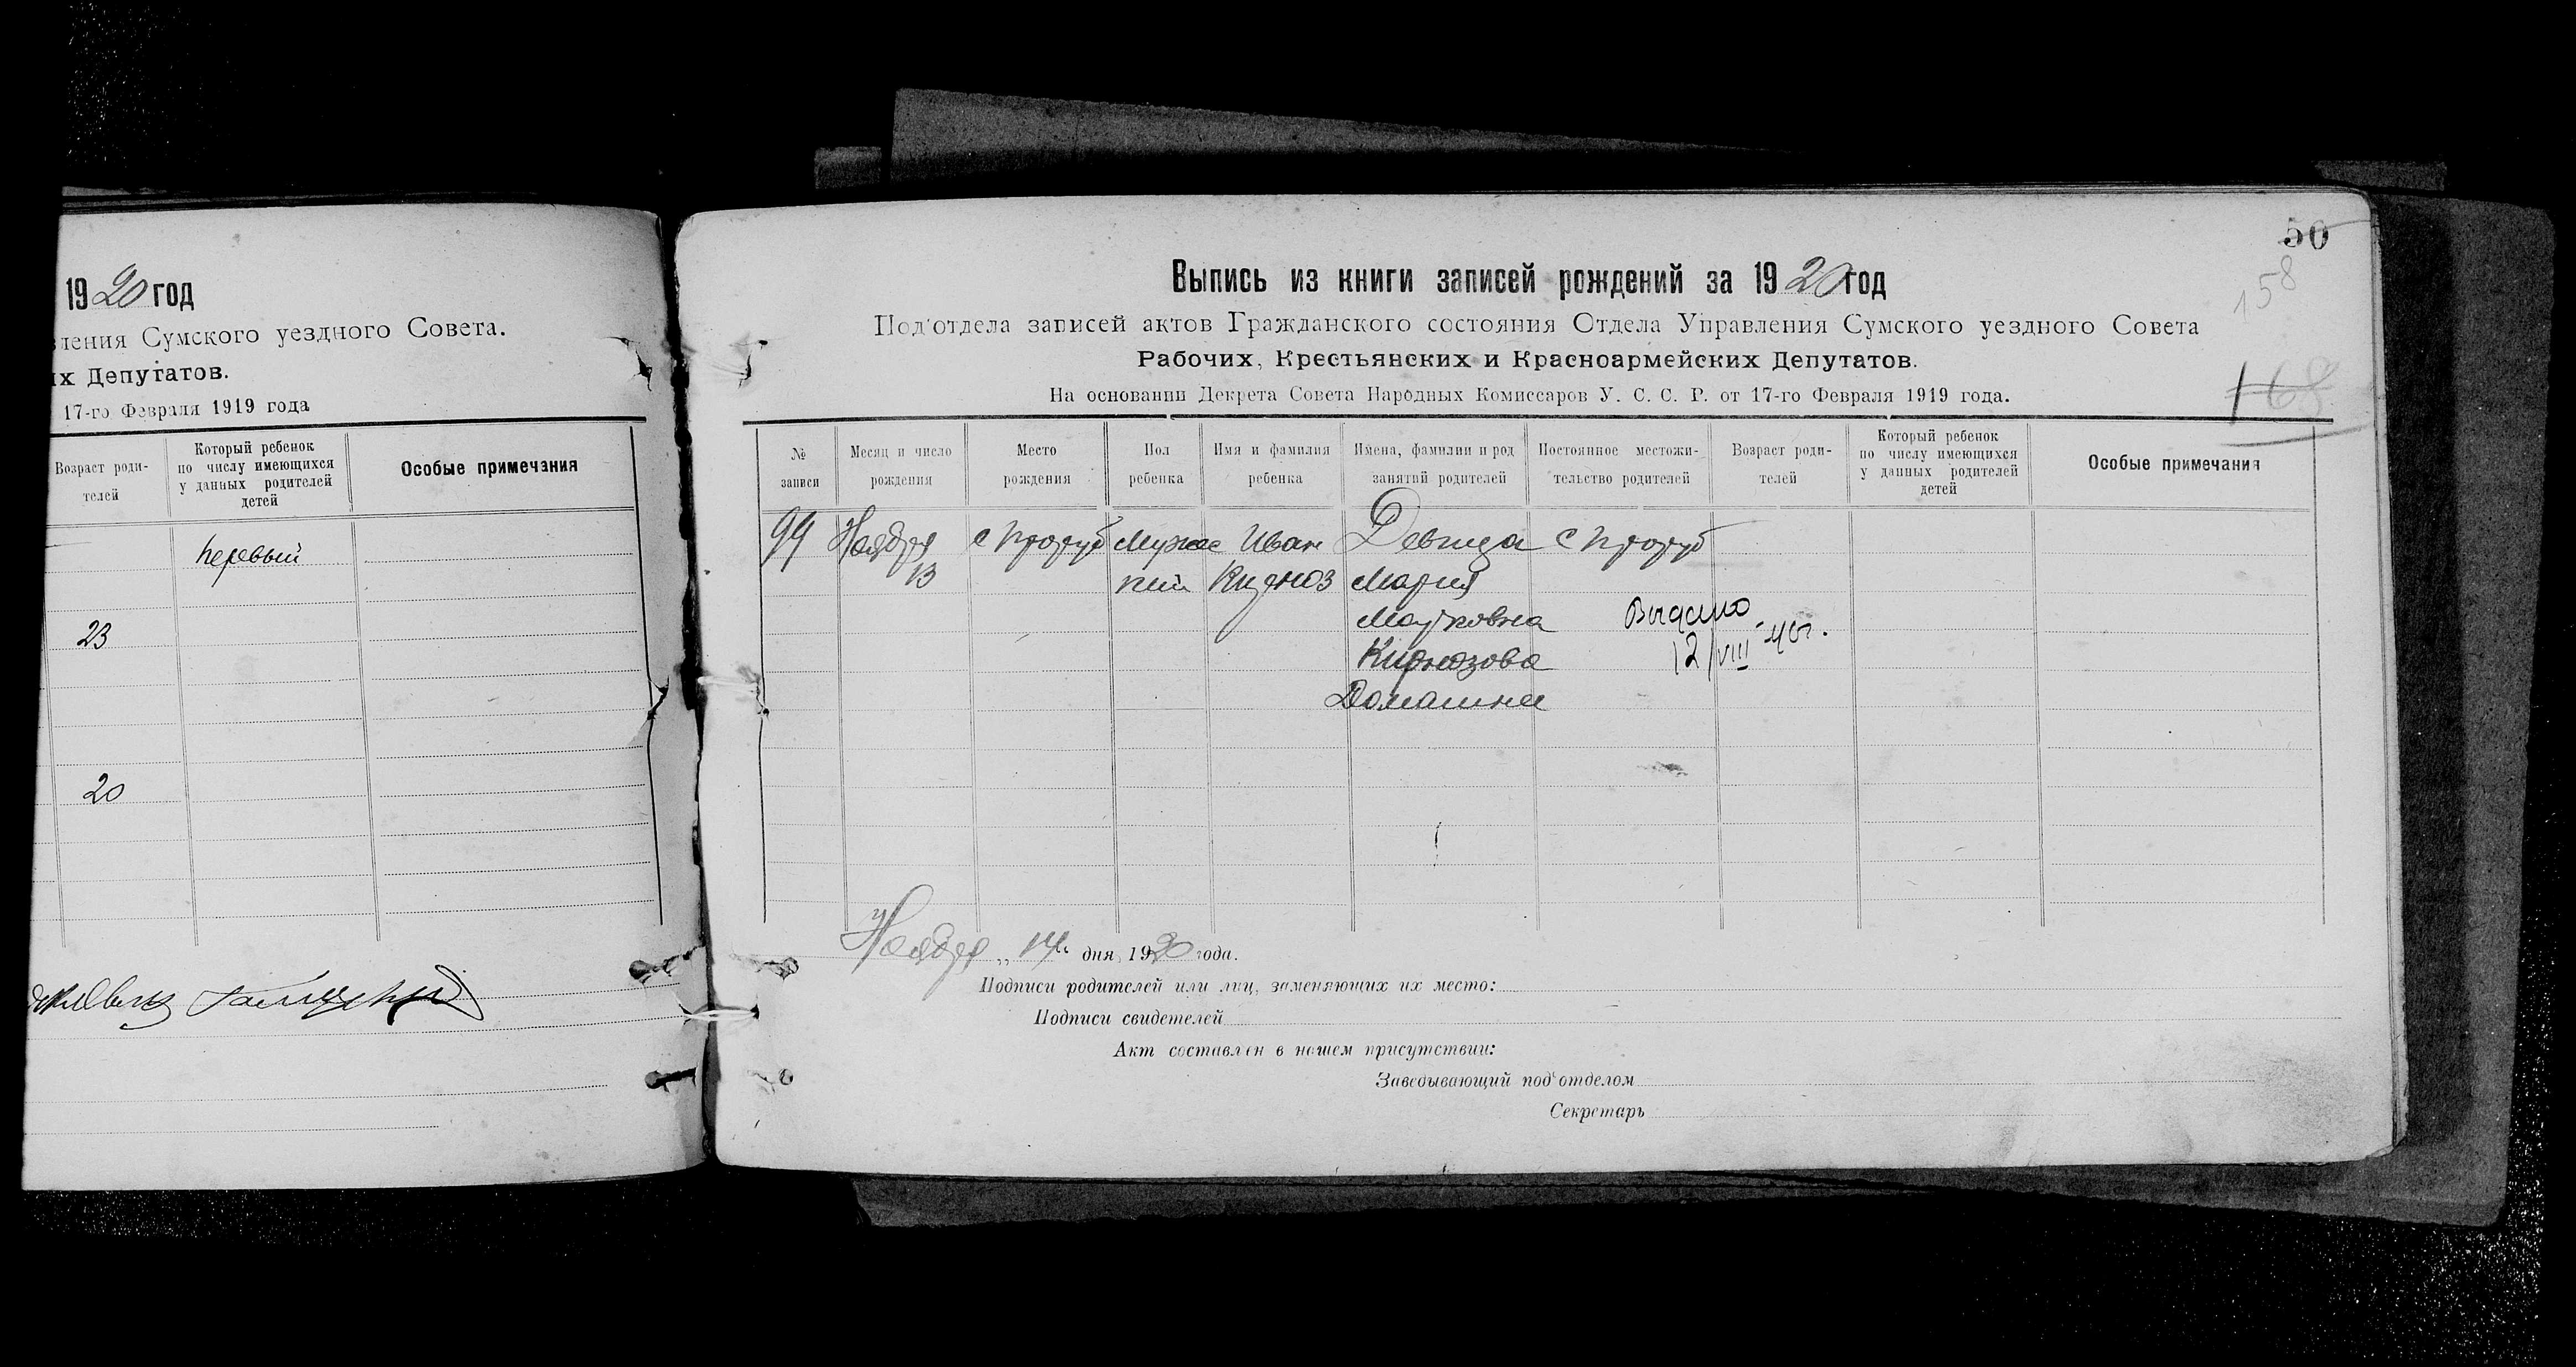 1920 год
Сумского уездного Совета.
Депутатов.
17-го Февраля 1919 года
Возраст роди-
телей
Который ребенок
по числу имеющихся
у данных родителей
детей
Особые примечания
первый
23
20
50
158
168
Выпись из книги записей рождений за 1920 год
Под'отдела записей актов Гражданского состояния Отдела Управления Сумского уездного Совета
Рабочих, Крестьянских и Красноармейских Депутатов.
На основании Декрета Совета Народных Комиссаров У. С. С. Р. от 17-го Февраля 1919 года.
№
записи
Месяц и число
рождения
Место
рождения
Пол
ребенка
Имя и фамилия
ребенка
Имена, фамилии и род
занятий родителей
Постоянное местожи-
тельство родителей
Возраст роди-
телей
Который ребенок
по числу имеющихся
у данных родителей
детей
Особые примечания
99 Ноября с Проруб Мужес Иван Девица с Проруб
13 кий Кирноз Мария
Марковна
Кирнозова
Домашнее
Выдано
12/VIII-40г.
Ноября „14“ дня 1920 года.
Подписи родителей или лиц, заменяющих их место:
Подписи свидетелей
Акт составлен в нашем присутствии:
Заведывающий под'отделом
Секретарь